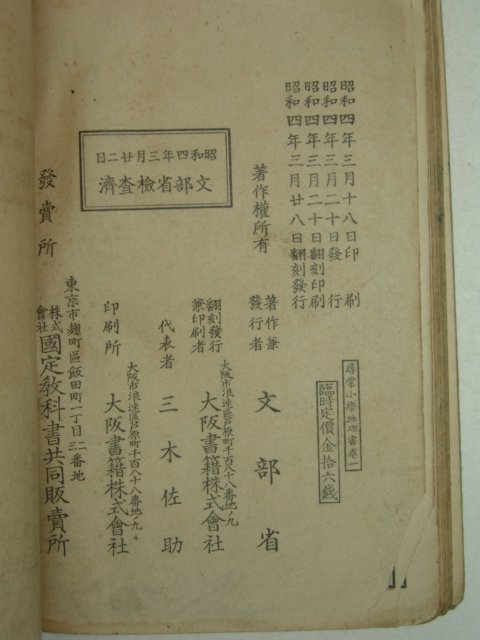 昭和四年三月十八日印刷
昭和四年三月二十日發行
昭和四年三月二十日翻刻印刷
昭和四年三月廿八日翻刻發行
尋常小學地理書卷一
臨時定價金拾六錢
著作權所有
著作兼
發行者
文部省
翻刻發行
兼印刷者
大阪市浪速區芦原町千百八十八番地ノ九
大阪書籍株式會社
代表者
三木佐助
印刷所
大阪市浪速區芦原町千百八十八番地ノ九
大阪書籍株式會社
昭和四年三月廿二日
文部省檢查濟
發賣所
東京市麹町區飯田町一丁目二番地
株式
會社
國定教科書共同販賣所